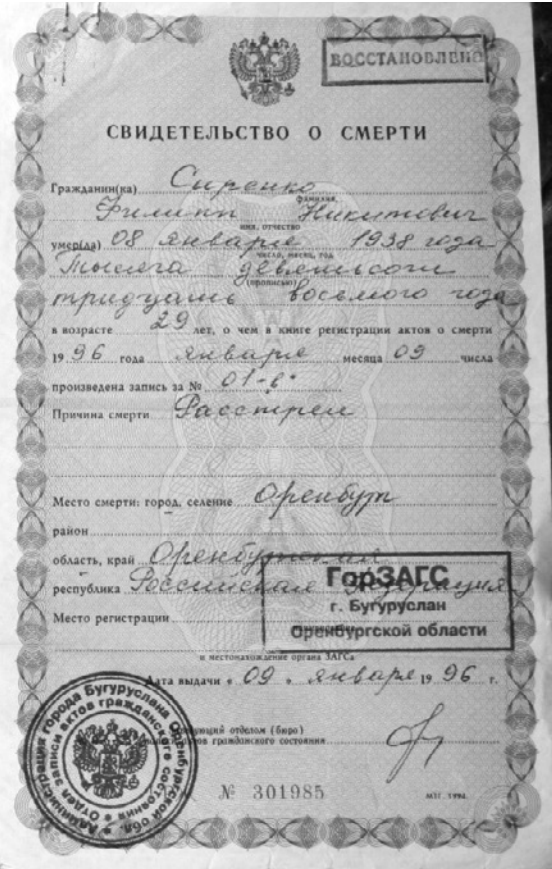 ВОССТАНОВЛЕНО
СВИДЕТЕЛЬСТВО О СМЕРТИ
Гражданин(ка) Сиренко
фамилия,
Филипп Никитович
имя, отчество
умер(ла) 08 января 1938 года
число, месяц, год
Тысяча девятьсот
(прописью)
тридцать восьмого года
в возрасте 29 лет, о чем в книге регистрации актов о смерти
1996 года января месяца 09 числа
произведена запись за № 01-в
Причина смерти Расстрел
Место смерти: город, селение Оренбург
район
область, край Оренбургская
республика Российская Федерация
ГорЗАГС
г. Бугуруслан
Оренбургской области
Место регистрации
и местонахождение органа ЗАГСа
Дата выдачи « 09 » января 1996 г.
Заведующий отделом (бюро)
записи актов гражданского состояния
Администрация города Бугуруслана Оренбургской обл.
Отдел записи актов гражданского состояния
№ 301985
МТГ. 1992.